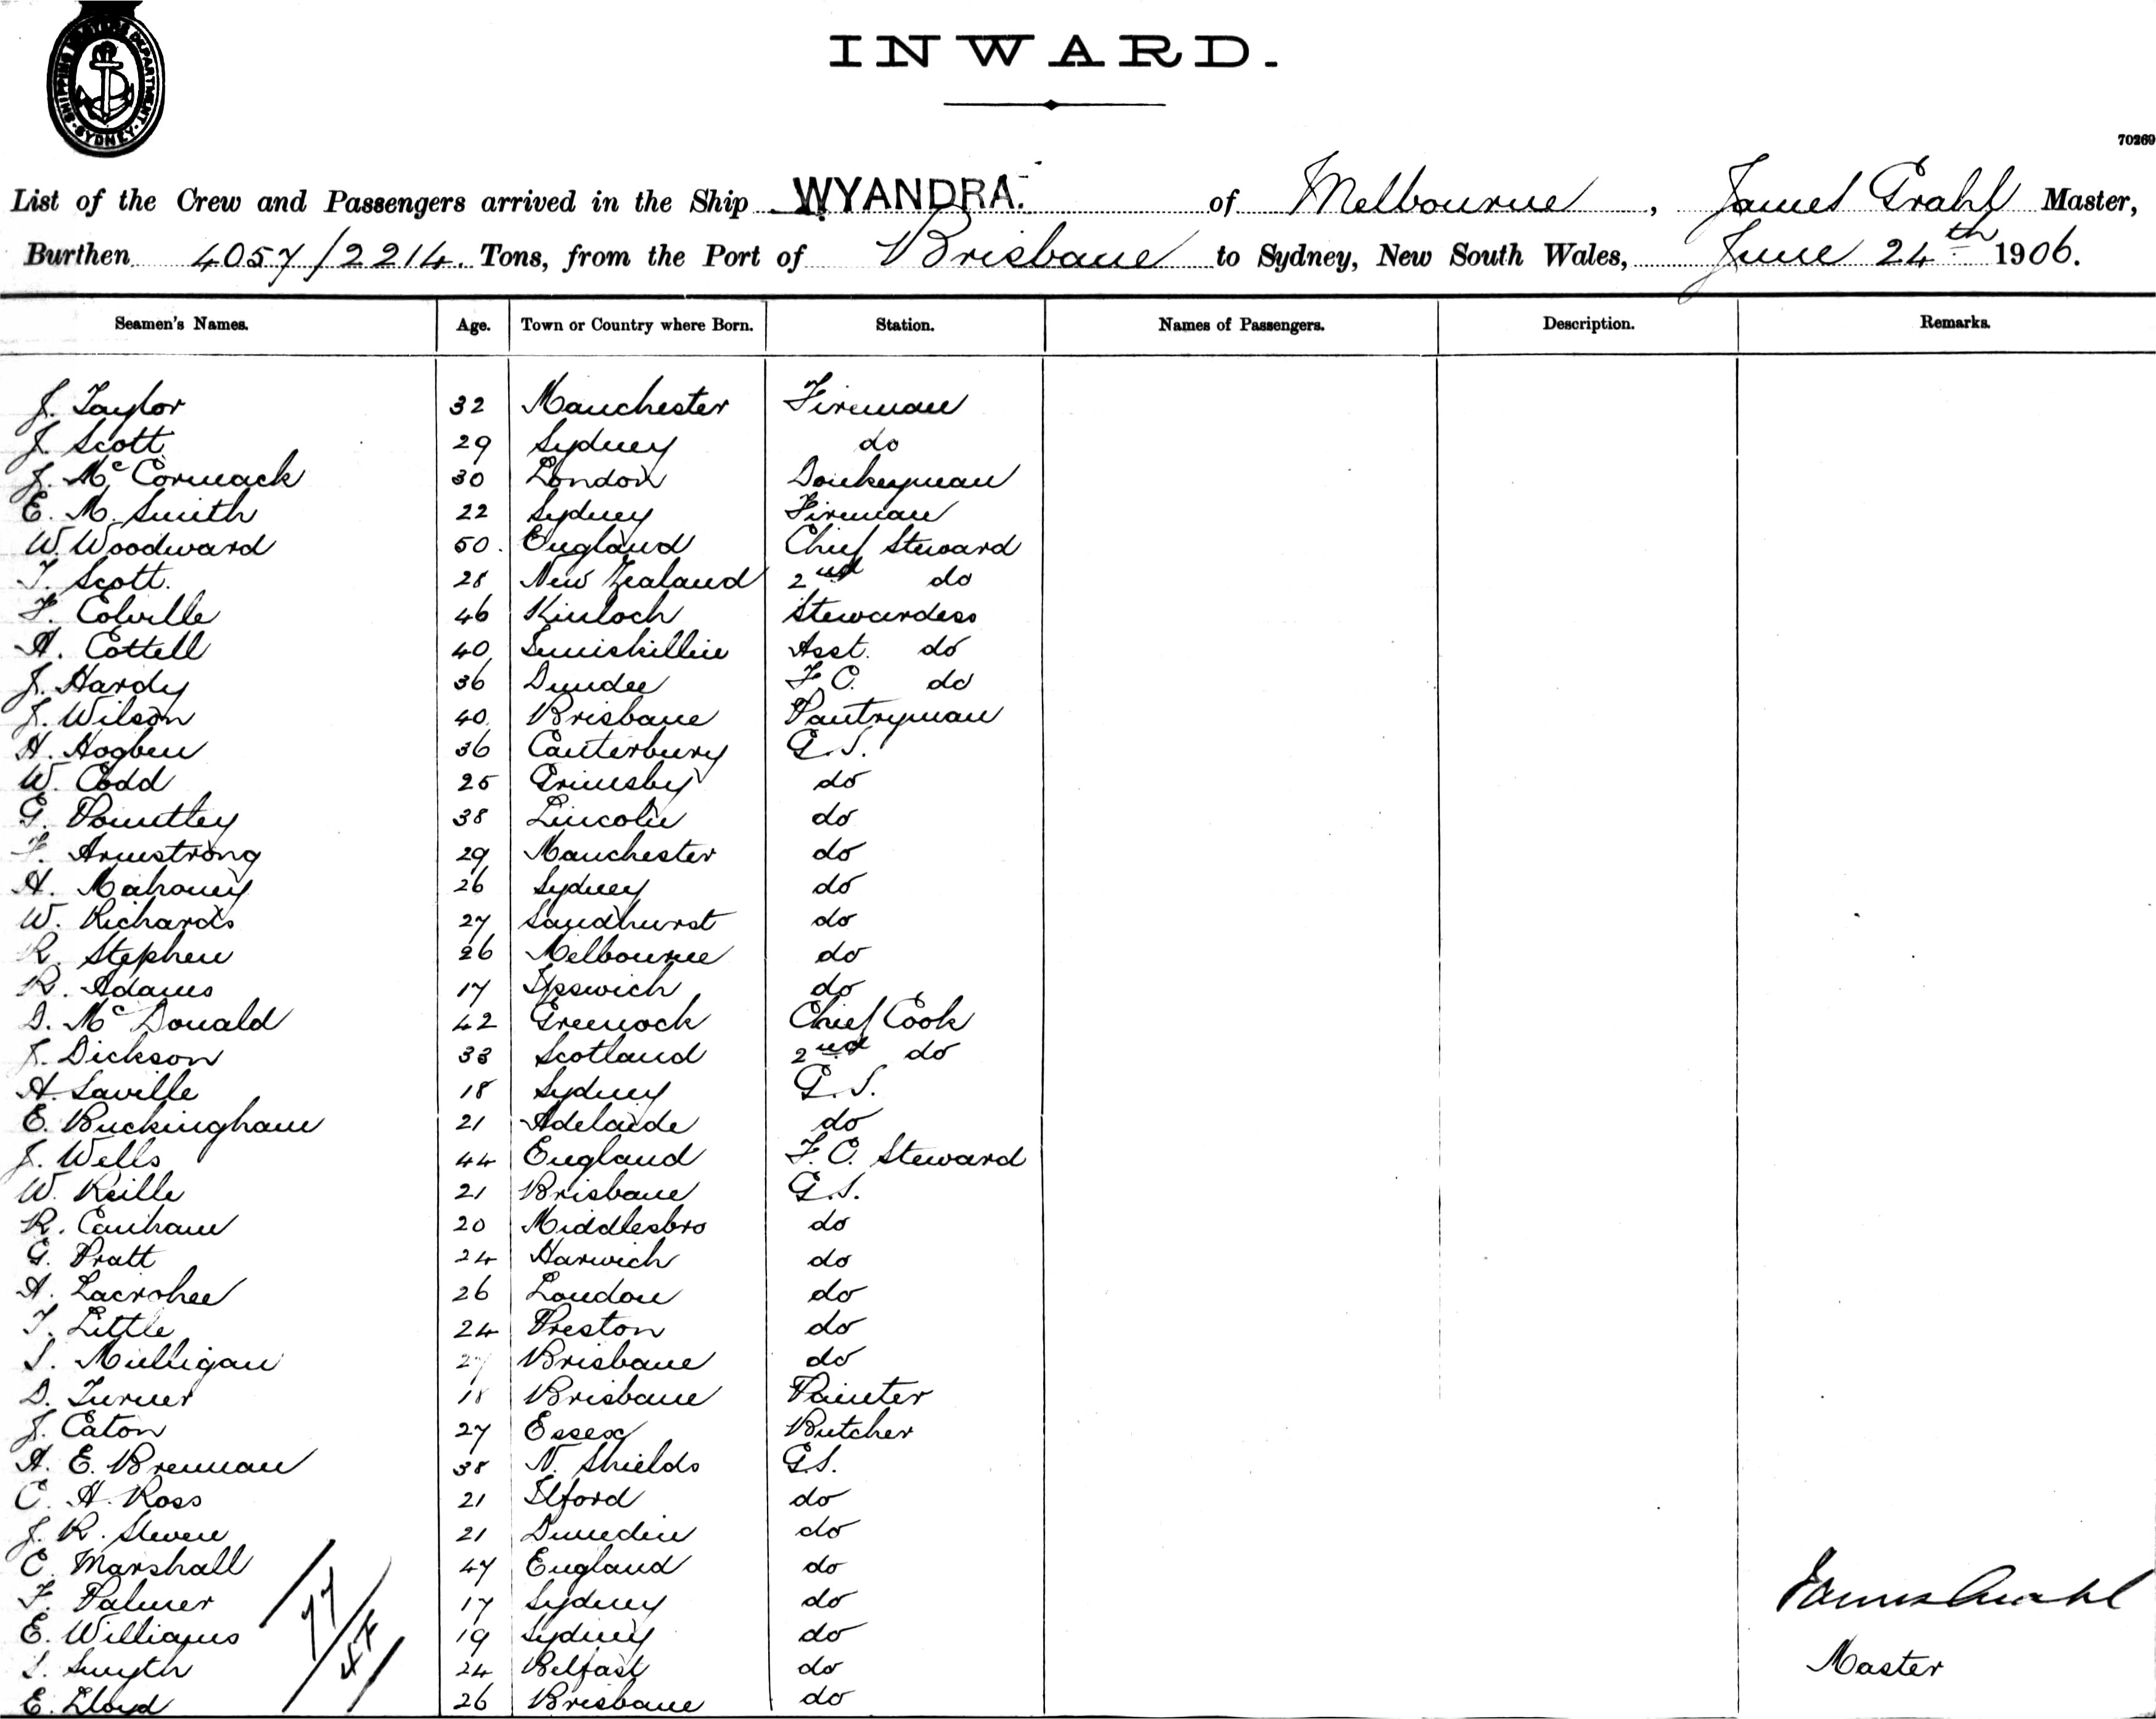 SHIPPING MASTER'S DEPARTMENT
SYDNEY
INWARD.
70269
List of the Crew and Passengers arrived in the Ship WYANDRA. of Melbourne, James Grahl Master,
Burthen 4057/2214. Tons, from the Port of Brisbane to Sydney, New South Wales, June 24th 1906.
Seamen's Names. Age. Town or Country where Born. Station. Names of Passengers. Description. Remarks.
J. Taylor 32 Manchester Fireman
J. Scott 29 Sydney do
J. McCormack 30 London Donkeyman
E. M. Smith 22 Sydney Fireman
W. Woodward 50. England Chief Steward
T. Scott. 28 New Zealand 2nd do
F. Colville 46 Kinloch Stewardess
A. Cottell 40 Enniskillin Asst. do
J. Hardy 36 Dundee F.C. do
J. Wilson 40. Brisbane Pantryman
H. Hogben 36 Canterbury G.S.
W. Codd 25 Grimsby do
G. Pountley 38 Lincoln do
F. Armstrong 29 Manchester do
H. Mahoney 26 Sydney do
W. Richards 27 Sandhurst do
R. Stephen 26 Melbourne do
R. Adams 17 Ipswich do
D. McDonald 42 Greenock Chief Cook
J. Dickson 33 Scotland 2nd do
A. Saville 18 Sydney G.S.
E. Buckingham 21 Adelaide do
J. Wells 44 England F.C. Steward
W. Reille 21 Brisbane G.S.
R. Canham 20 Middlesbro do
G. Pratt 24 Harwich do
A. 26 London do
T. Little 24 Preston do
S. Mulligan 27 Brisbane do
D. Turner 18 Brisbane Painter
J. Eaton 27 Essex Butcher
A. E. Brennan 38 N. Shields G.S.
C. H. Ross 21 Ilford do
J. R. Steven 21 Dunedin do
C. Marshall 47 England do
F. Palmer 17 Sydney do
E. Williams 19 Sydney do
S. Smyth 24 Belfast do
E. Lloyd 26 Brisbane do
77
James Grahl
Master